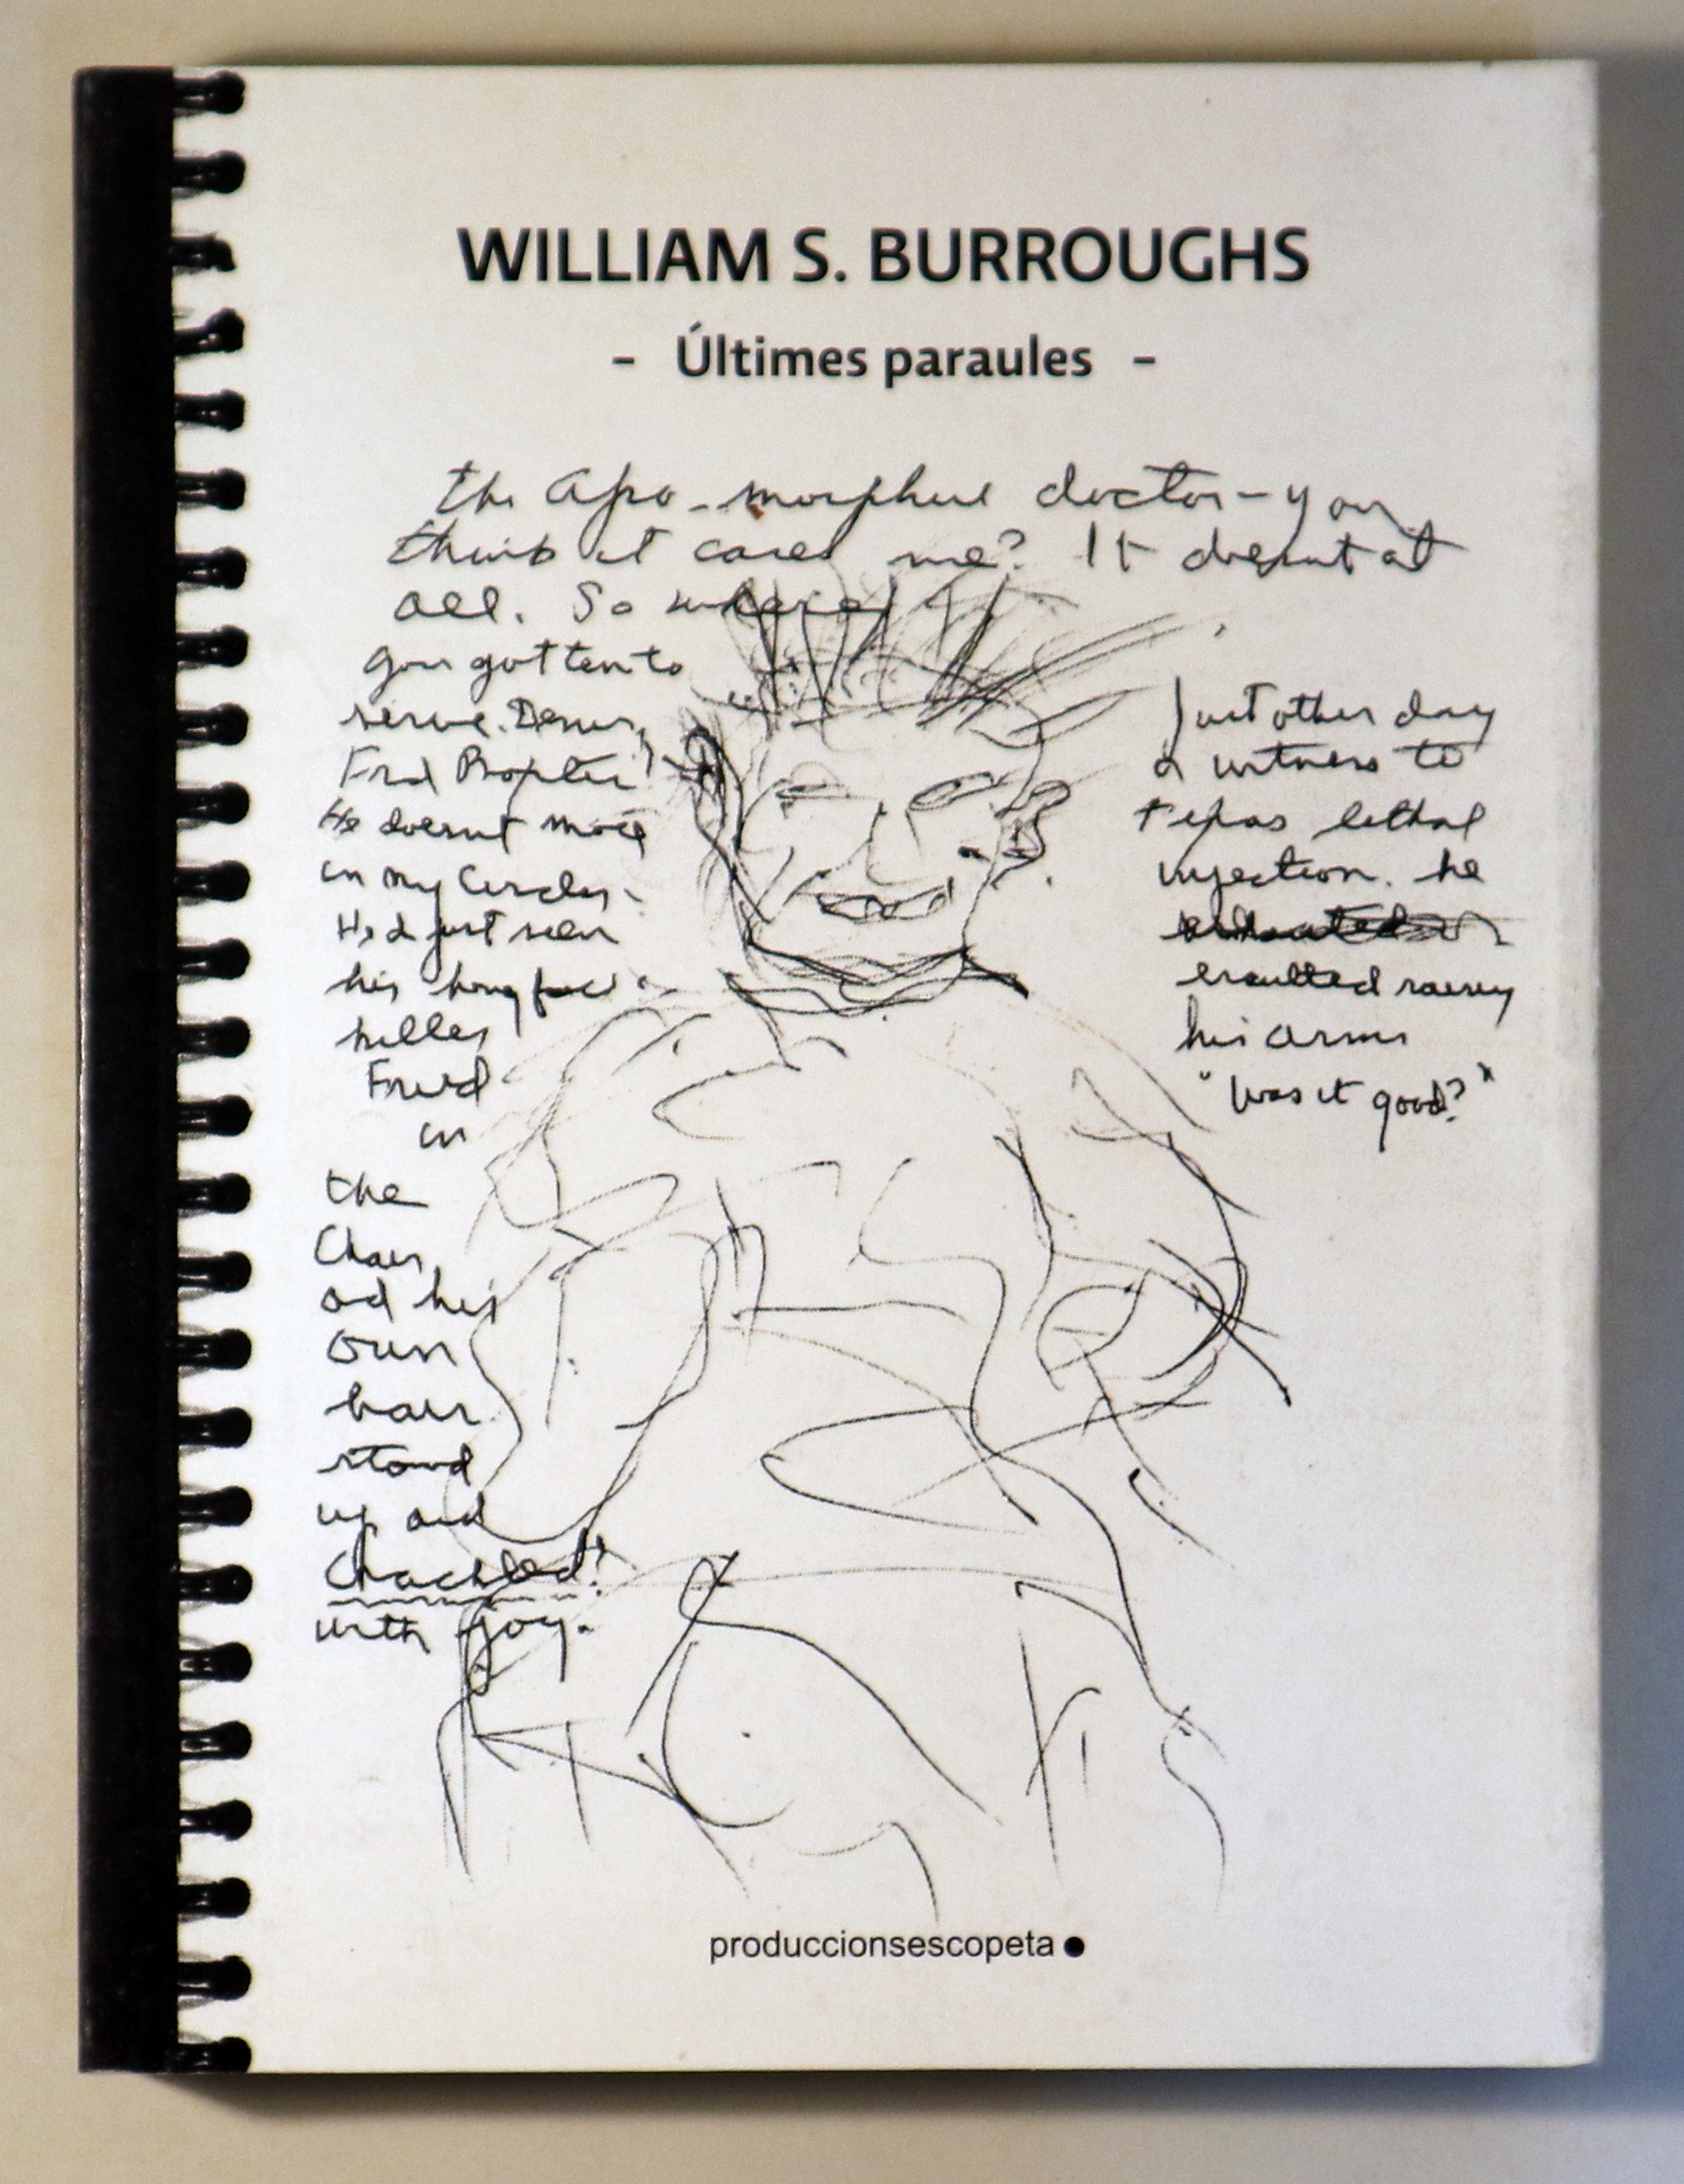 WILLIAM S. BURROUGHS
- Últimes paraules -
the Apo-morphine doctor - you
think it cares me? It doesnt at
all. So where
you gotten to
serve.
Fred
He doesnt move
in my Circles.
He d just seen
his
killer
Fried
in
the
Chair,
ad his
own
hair
stood
up and
Crackled!
with joy.
Just other day
a witness to
Texas lethal
injection. he
exulted raising
his arms
"Was it good?"
produccionsescopeta